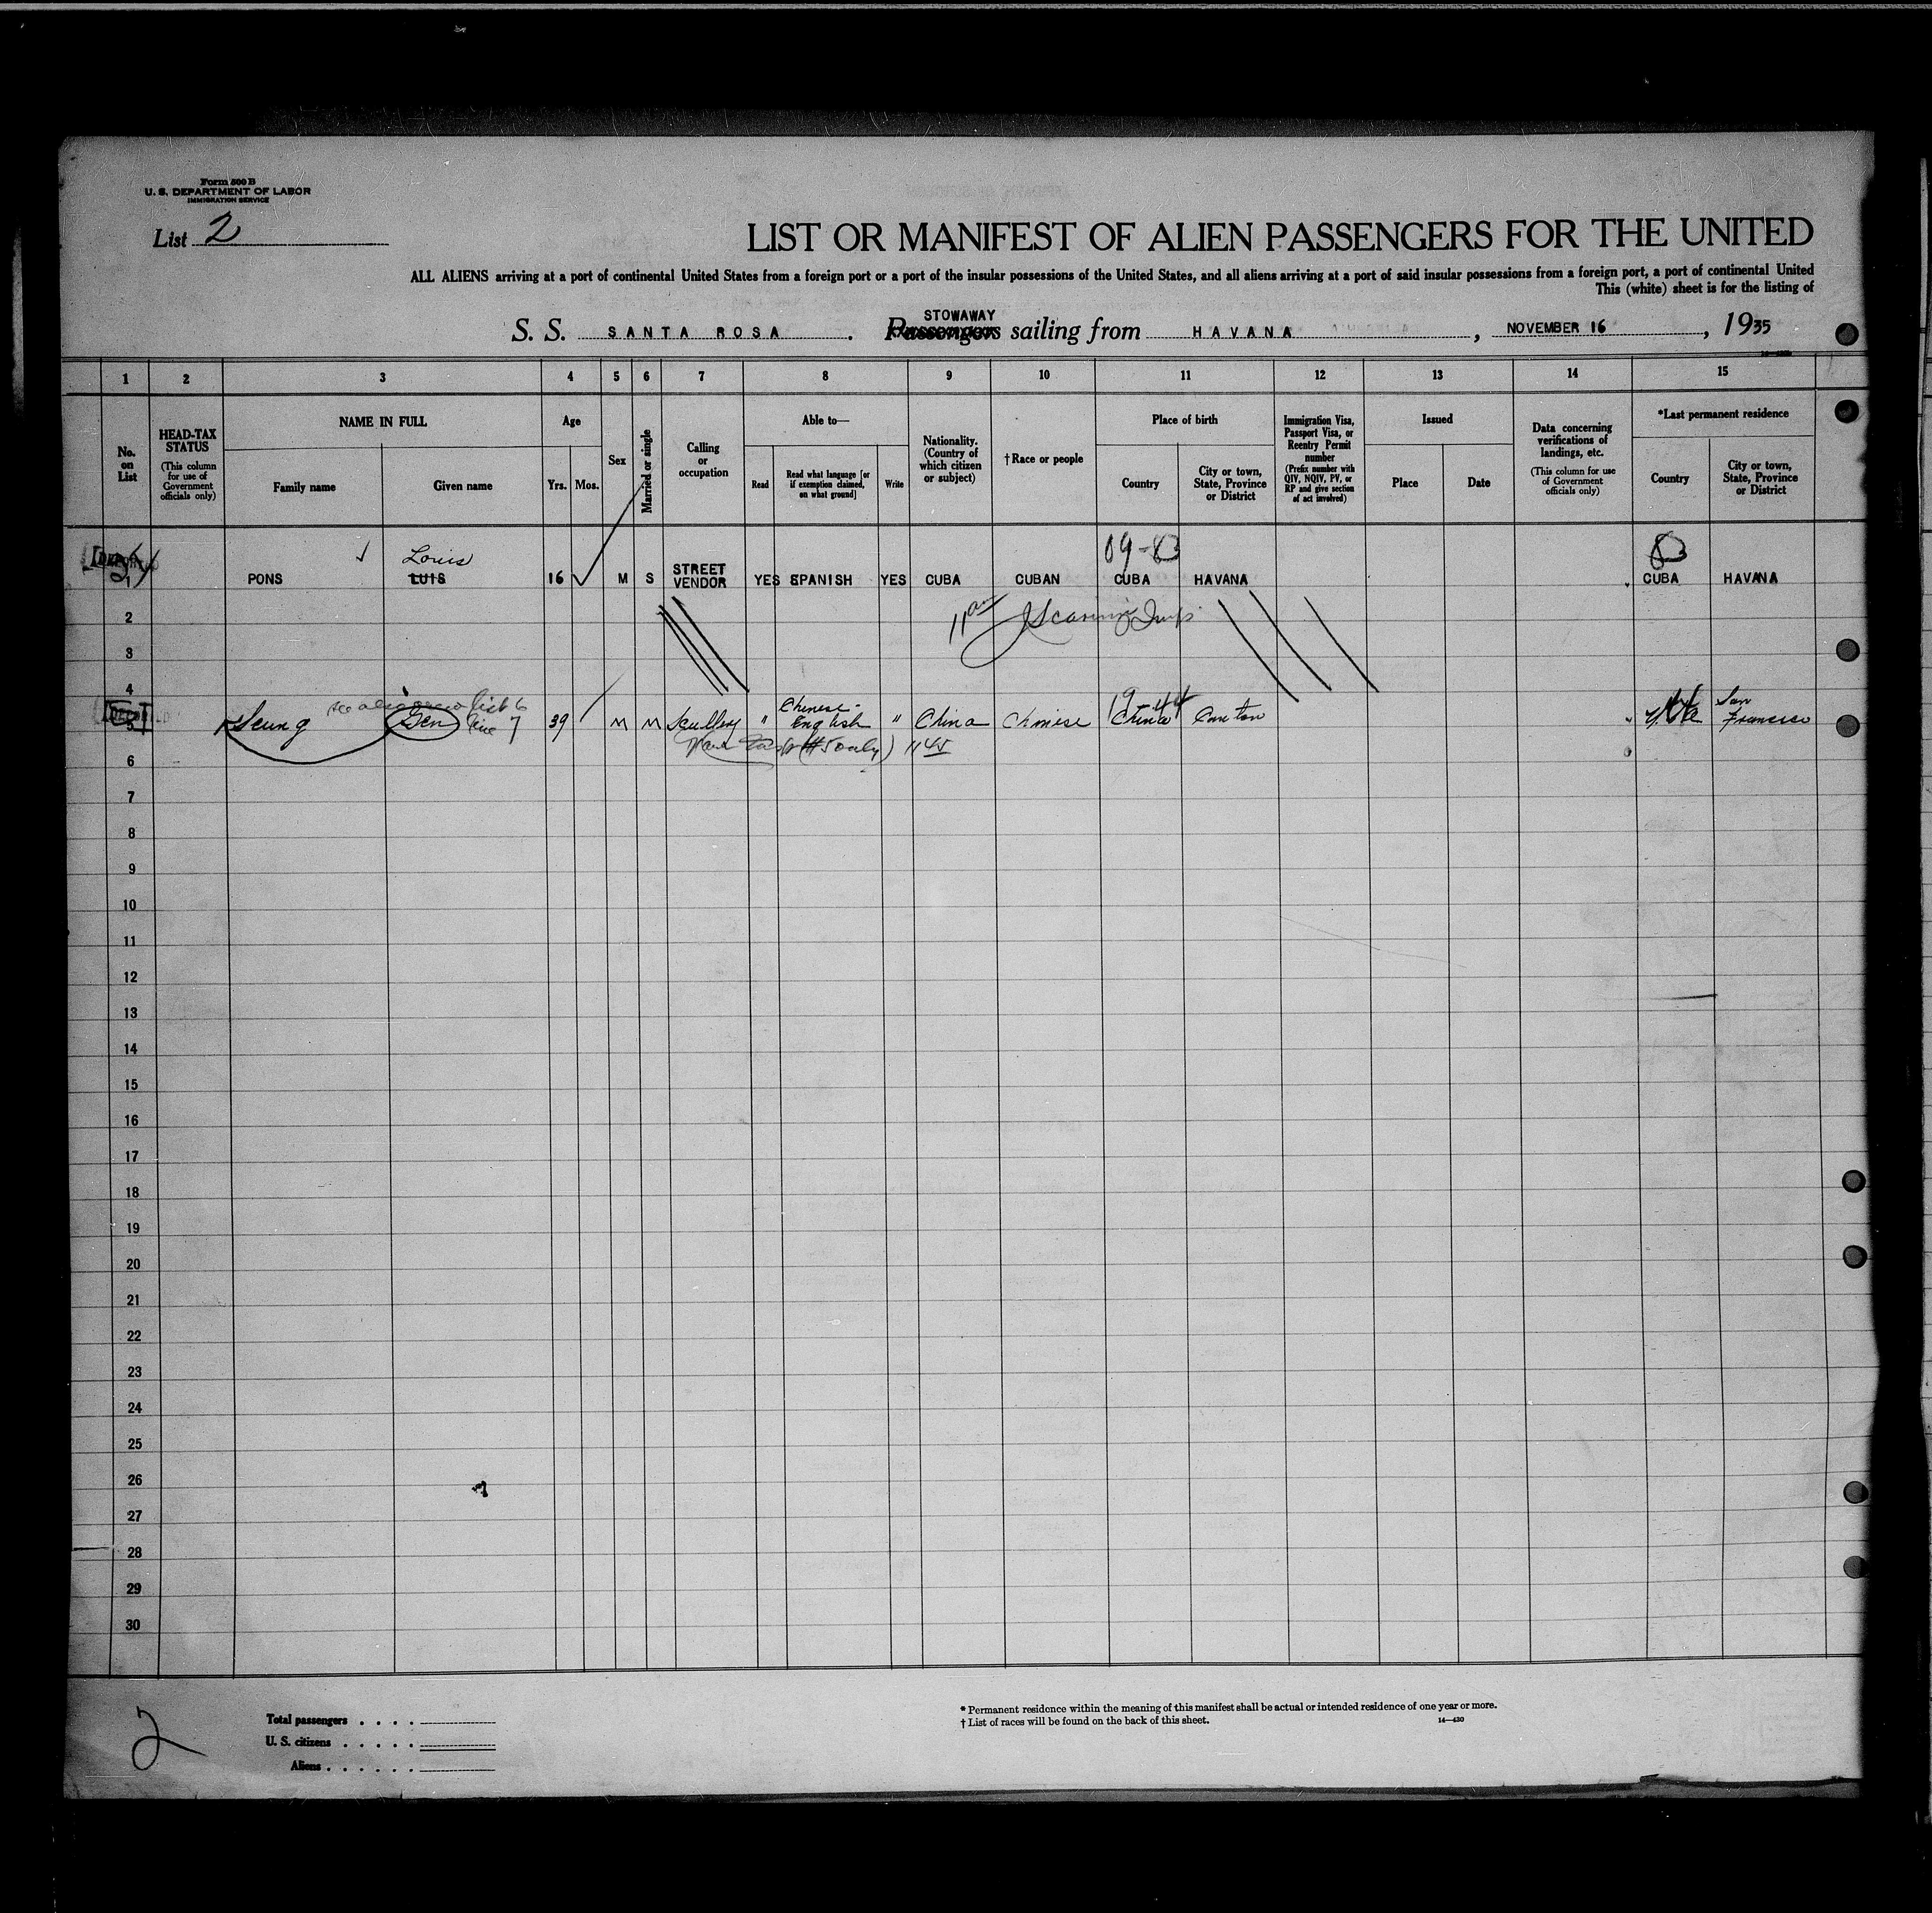 Form 500 B
U. S. DEPARTMENT OF LABOR
IMMIGRATION SERVICE
List 2
LIST OR MANIFEST OF ALIEN PASSENGERS FOR THE UNITED
ALL ALIENS arriving at a port of continental United States from a foreign port or a port of the insular possessions of the United States, and all aliens arriving at a port of said insular possessions from a foreign port, a port of continental United
This (white) sheet is for the listing of
STOWAWAY
S. S. SANTA ROSA . Passengers sailing from HAVANA , NOVEMBER 16 , 1935
1 2 3 4 5 6 7 8 9 10 11 12 13 14 15
No. on List
HEAD-TAX STATUS (This column for use of Government officials only)
NAME IN FULL
Family name Given name
Age
Yrs. Mos.
Sex
Married or single
Calling or occupation
Able to—
Read
Read what language [or if exemption claimed, on what ground]
Write
Nationality. (Country of which citizen or subject)
†Race or people
Place of birth
Country
City or town, State, Province or District
Immigration Visa, Passport Visa, or Reentry Permit number (Prefix number with QIV, NQIV, PV, or RP and give section of act involved)
Issued
Place Date
Data concerning verifications of landings, etc. (This column for use of Government officials only)
*Last permanent residence
Country
City or town, State, Province or District
09-83
Louis
PONS LUIS 16 M S STREET VENDOR YES SPANISH YES CUBA CUBAN CUBA HAVANA CUBA HAVANA
11 am
2
3
4
see also list 6 line 7
Seung Gen 39 M M Scullery " Chinese - English " China Chinese China Canton San Francisco
(#5 only) 1145
6
7
8
9
10
11
12
13
14
15
16
17
18
19
20
21
22
23
24
25
26
27
28
29
30
2
Total passengers . . . .
U. S. citizens . . . . .
Aliens . . . . . .
* Permanent residence within the meaning of this manifest shall be actual or intended residence of one year or more.
† List of races will be found on the back of this sheet.
14—430